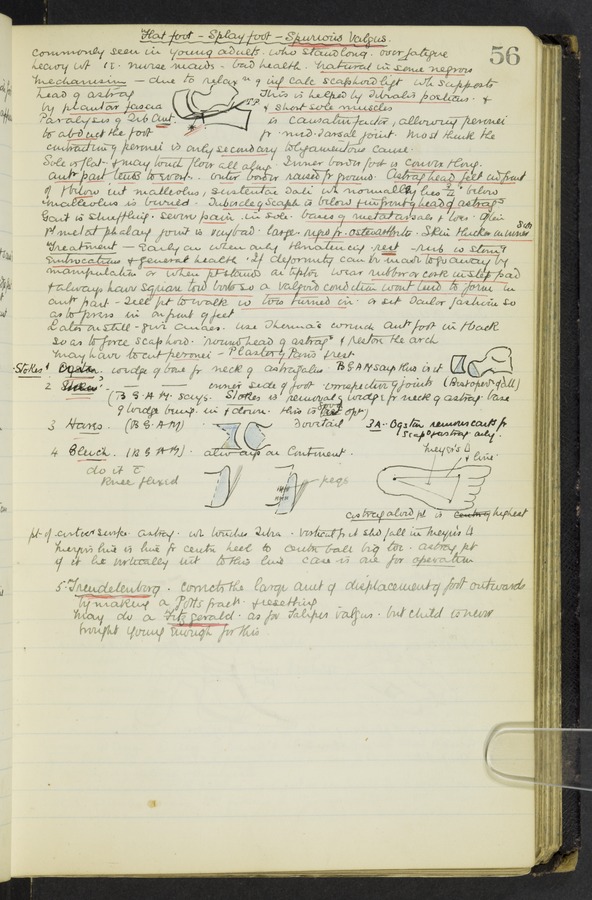 Flat foot - Splay foot - Spurious Valgus.
56
commonly seen in young adults who stand long. over fatigue
heavy wt i.e. nurse maids - bad health. natural in some negroes
mechanism - due to relax^n of inf calc scaphoid ligt wh supports
head of astrag
This is helped by tibialis posticus. +
by plantar fascia
T.P
+ short sole muscles
Paralysis of Tib Ant.
is causation factor, allowing peronei
to abduct the foot
fr. mid-tarsal joint. Most think the
contracting peronei is only secondary to ligamentous cause.
Sole is flat + may touch floor all along. Inner border foot is convex + long.
ant part tends to evert. outer border raised fr ground. Astrag head felt in front
of + below int malleolus, sustentac tali wh normally lies 3/4" below
malleolus is buried. Tubercle of scaph is below + in front of head of astrag^s
Gait is shuffling. severe pain in sole. bases of metatarsals + toes. often
1st metat phalang joint is very bad. large fr. osteoarthritis. Skin thicker on inner side
Treatment - Early in when only threatening rest - rub in stimg
Embrocations + general health. If deformity can be made to go away by
manipulation or when pt stands on tiptoe wear rubber or cork instep pad
+ always have square toed boots so a valgoid condition wont tend to form in
ant part - Tell pt to walk in toes turned in. or sit Tailor fashion so
as to press in on front of feet
Later on still - give anaes. use Thomas's wrench ant foot in + back
so as to force scaphoid. round head of astrag^s + restore the arch
may have to cut peronei - Plaster of Paris + rest
Stokes' Ogston. wedge of bone fr neck of astragalus. B G A M says this is it (Best oper^n of all)
2 Stokes' - - inner side of foot irrespective of joints
(B G A M. says. Stokes is removal of wedge fr neck of astrag base
of wedge being in + down. this is best opt)
3 Hares. (B G A M)
Dovetail
3A. Ogston removes cart fr
scap + astrag only.
4 Bluich. (B G A M) also always on Continent.
Meyer's △
+ line
do it c̄
knee flexed
pegs
astragaloid pt is highest
pt of artic surface astrag. wh touches tibia. Vertical fr it shd fall in Meyer's △
Meyer's line is line fr centre heel to centre ball big toe. astrag pt
if it lie vertically int to this line case is one for operation
5. Trendelenburg. corrects the large amt of displacement of foot outwards
by making a Potts fract. + resetting
May do a Fitzgerald. as for Talipes valgus. but child is never
brought young enough for this